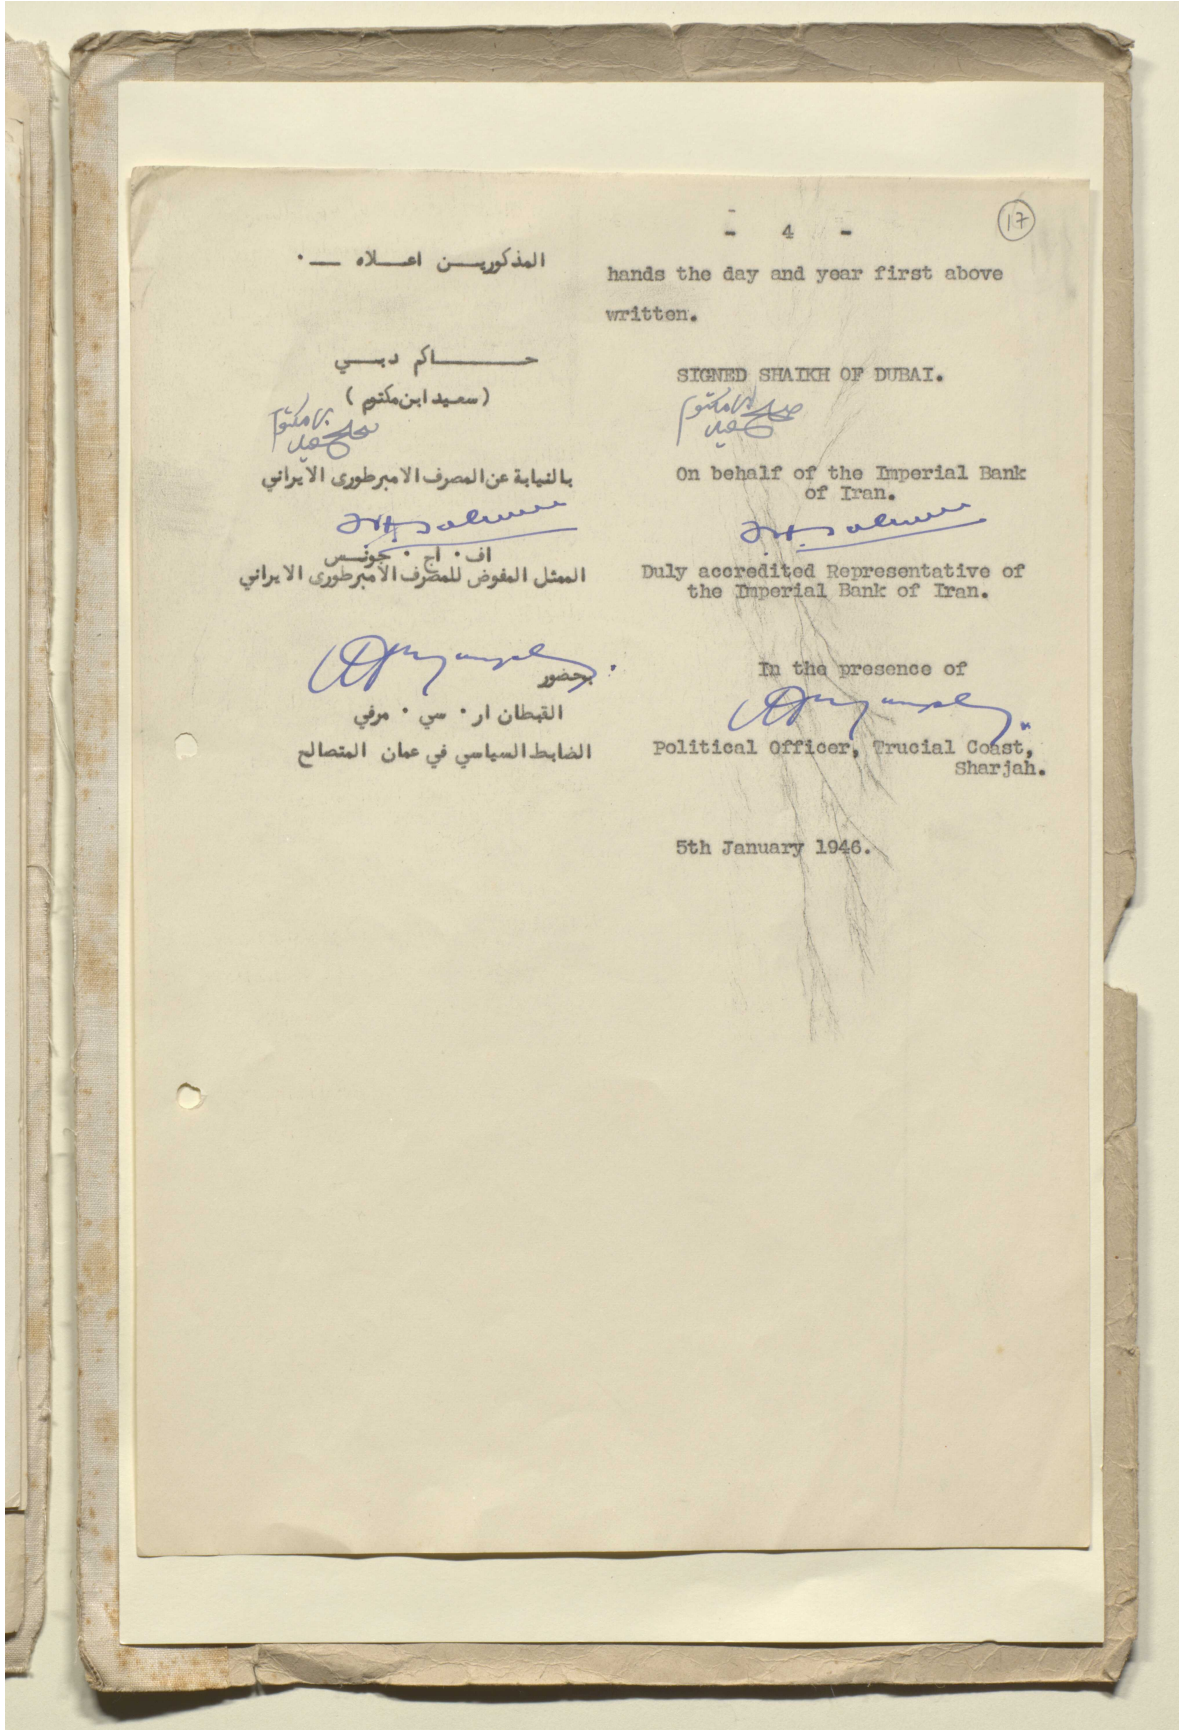 17
- 4 -
المذكوريـــن اعـــلاه ـــ .
hands the day and year first above
written.
حـــــــاكم دبـــي
(سعيد ابن مكتوم)
سعيد بن مكتوم
بالنيابة عن المصرف الامبرطورى الايراني
اف . اج . جونــس
الممثل المفوض للمصرف الامبرطورى الايراني
بحضور
القبطان ار . سي . مرفي
الضابط السياسي في عمان المتصالح
SIGNED SHAIKH OF DUBAI.
سعيد بن مكتوم
On behalf of the Imperial Bank
of Iran.
Duly accredited Representative of
the Imperial Bank of Iran.
In the presence of
Political Officer, Trucial Coast,
Sharjah.
5th January 1946.